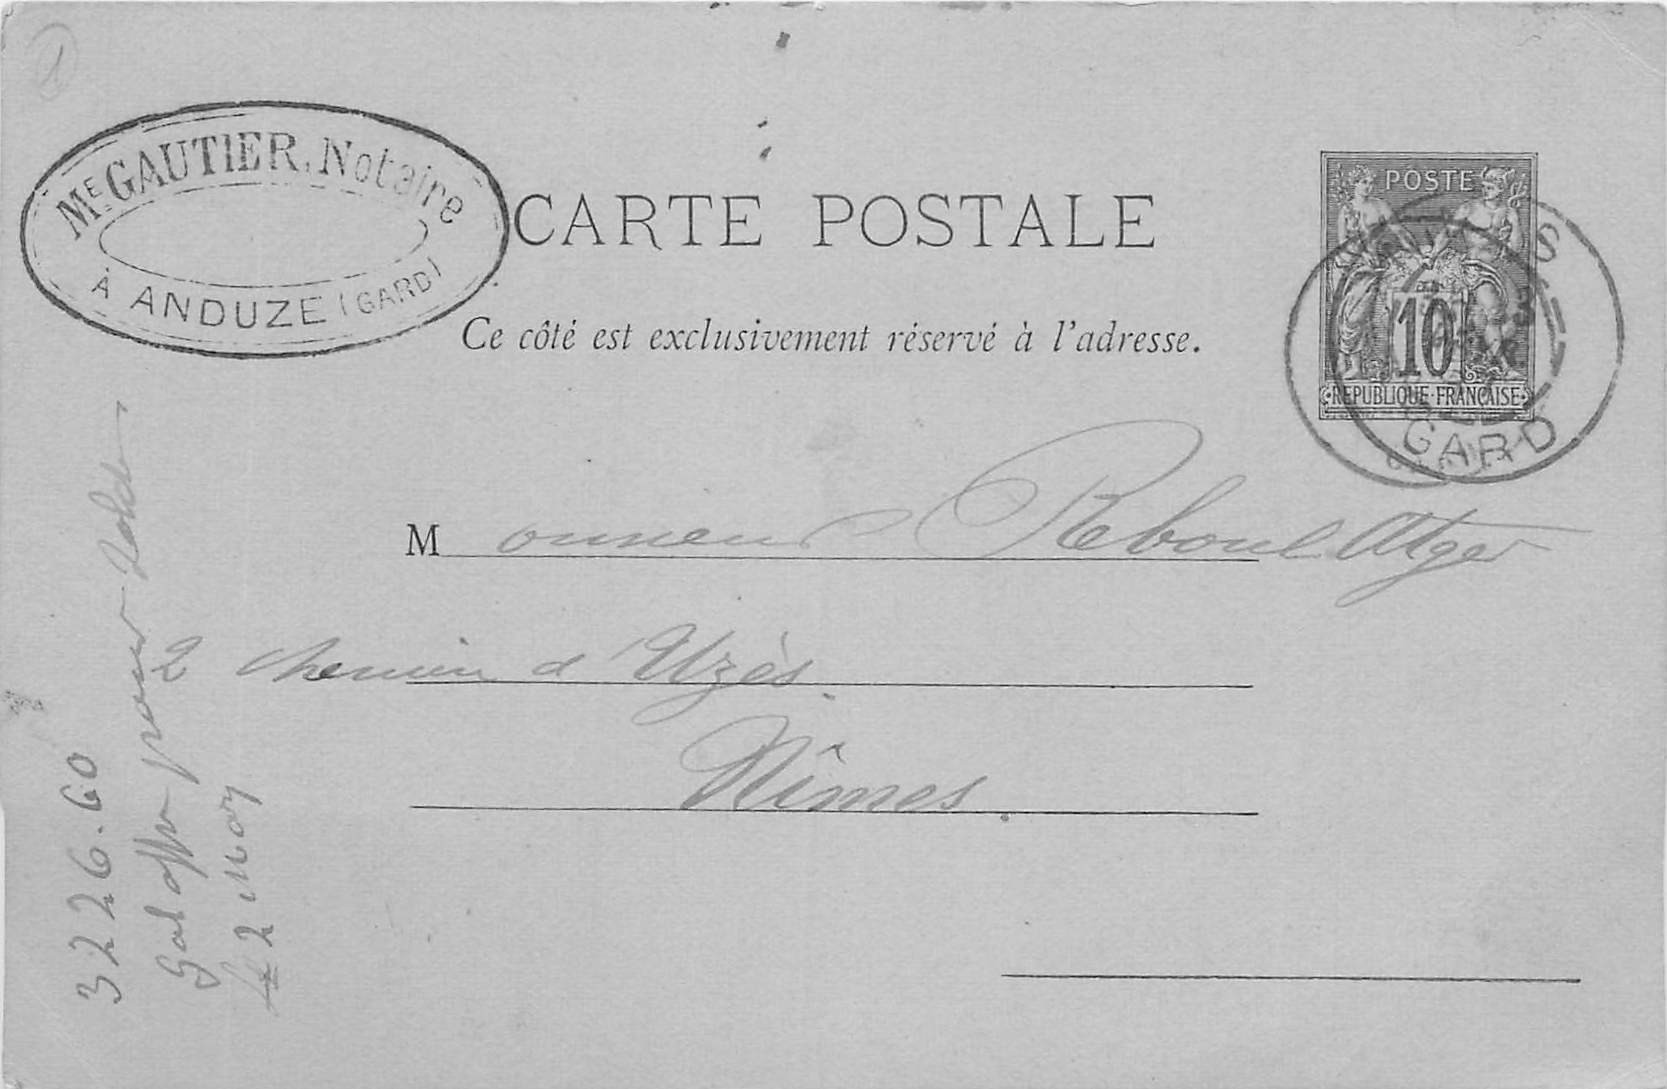 Me GAUTIER, Notaire
À ANDUZE (GARD)
CARTE POSTALE
Ce côté est exclusivement réservé à l'adresse.
POSTE
10
REPUBLIQUE FRANÇAISE
GARD
Monsieur Reboul Atger
2 chemin d'Uzès.
Nîmes.
3226.60
pour solde
le 2 May